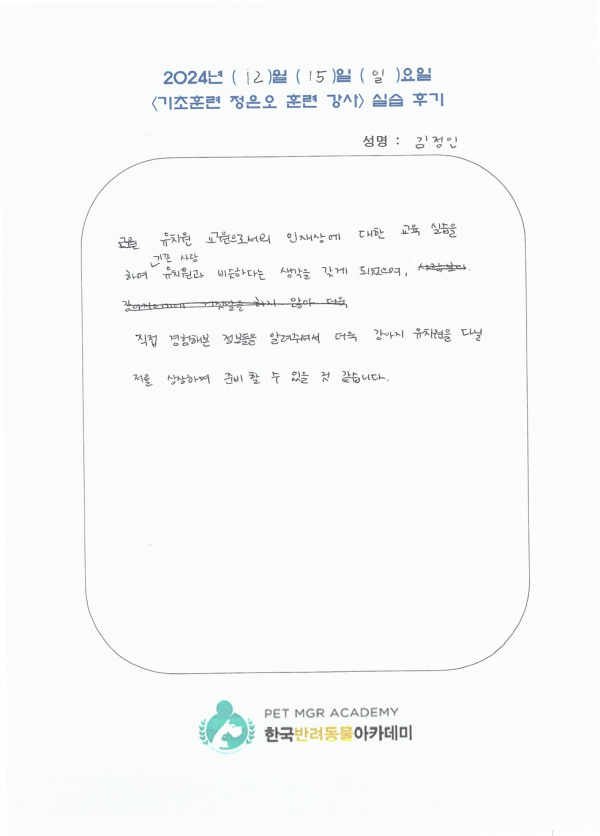 2024년 (12)월 (15)일 (일)요일
<기초훈련 정은오 훈련 강사> 실습 후기
성명 : 김정인
유치원 교원으로서의 인재상에 대한 교육 실습을
사람
하며 유치원과 비슷하다는 생각을 갖게 되었으며,
강아지에게 거짓말을 하지 않아 더욱
직접 경험해본 정보들을 알려주셔서 더욱 강아지 유치원을 다닐
저를 상상하며 준비 할 수 있을 것 같습니다.
PET MGR ACADEMY
한국반려동물아카데미